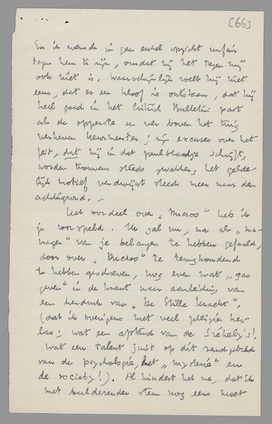 [66]
En ik wensch in geen enkel opzicht unfair
tegen hem te zijn, omdat hij het tegen mij
ook niet is. Waarschijnlijk voelt hij niet
eens, dat er een kloof is ontstaan, dat hij
heel goed in het Cultureel Bulletin past
als de opperste en ver boven het
verheven keurmeester; zijn excuses over het
feit, dat hij in dat publicatie schrijft,
worden trouwens steeds zwakker, het gelde-
lijk motief verdwijnt steeds meer naar den
achtergrond. —
Het oordeel over "Mikros" heb ik
je voorspeld. Ik zal nu, na als "ma-
nager" van je belangen te hebben gefaald,
door over "Mikros" te terughoudend
te hebben geschreven, nog even wat "gas
geven" in de krant naar aanleiding van
een herdruk van "De Stille Kracht",
(dat ik overigens met veel plezier her-
las: wat een afstand van de Székely's!
Wat een talent juist op dit randgebied
van de psychologie, het "mysterie" en
de society!). Het hindert me, dat ik
met bulderende stem nog eens moet